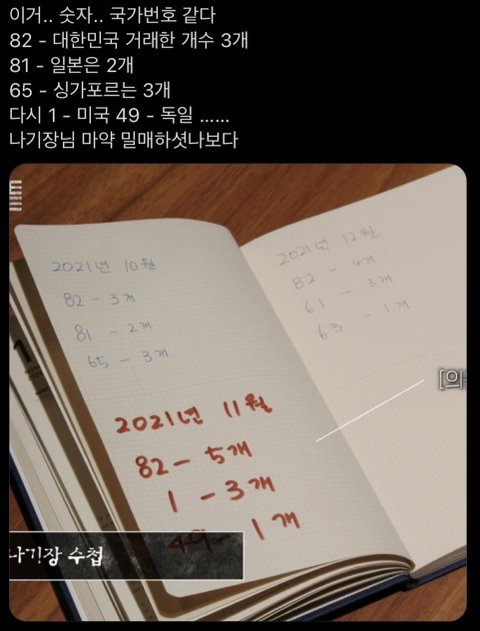 이거.. 숫자.. 국가번호 같다
82 - 대한민국 거래한 개수 3개
81 - 일본은 2개
65 - 싱가포르는 3개
다시 1 - 미국 49 - 독일 ......
나기장님 마약 밀매하셧나보다
2021년 10월
82 - 3개
81 - 2개
65 - 3개
2021년 11월
82 - 5개
1 - 3개
49 - 1개
2021년 12월
82 - 4개
61 - 3개
63 - 1개
[의
나기장 수첩